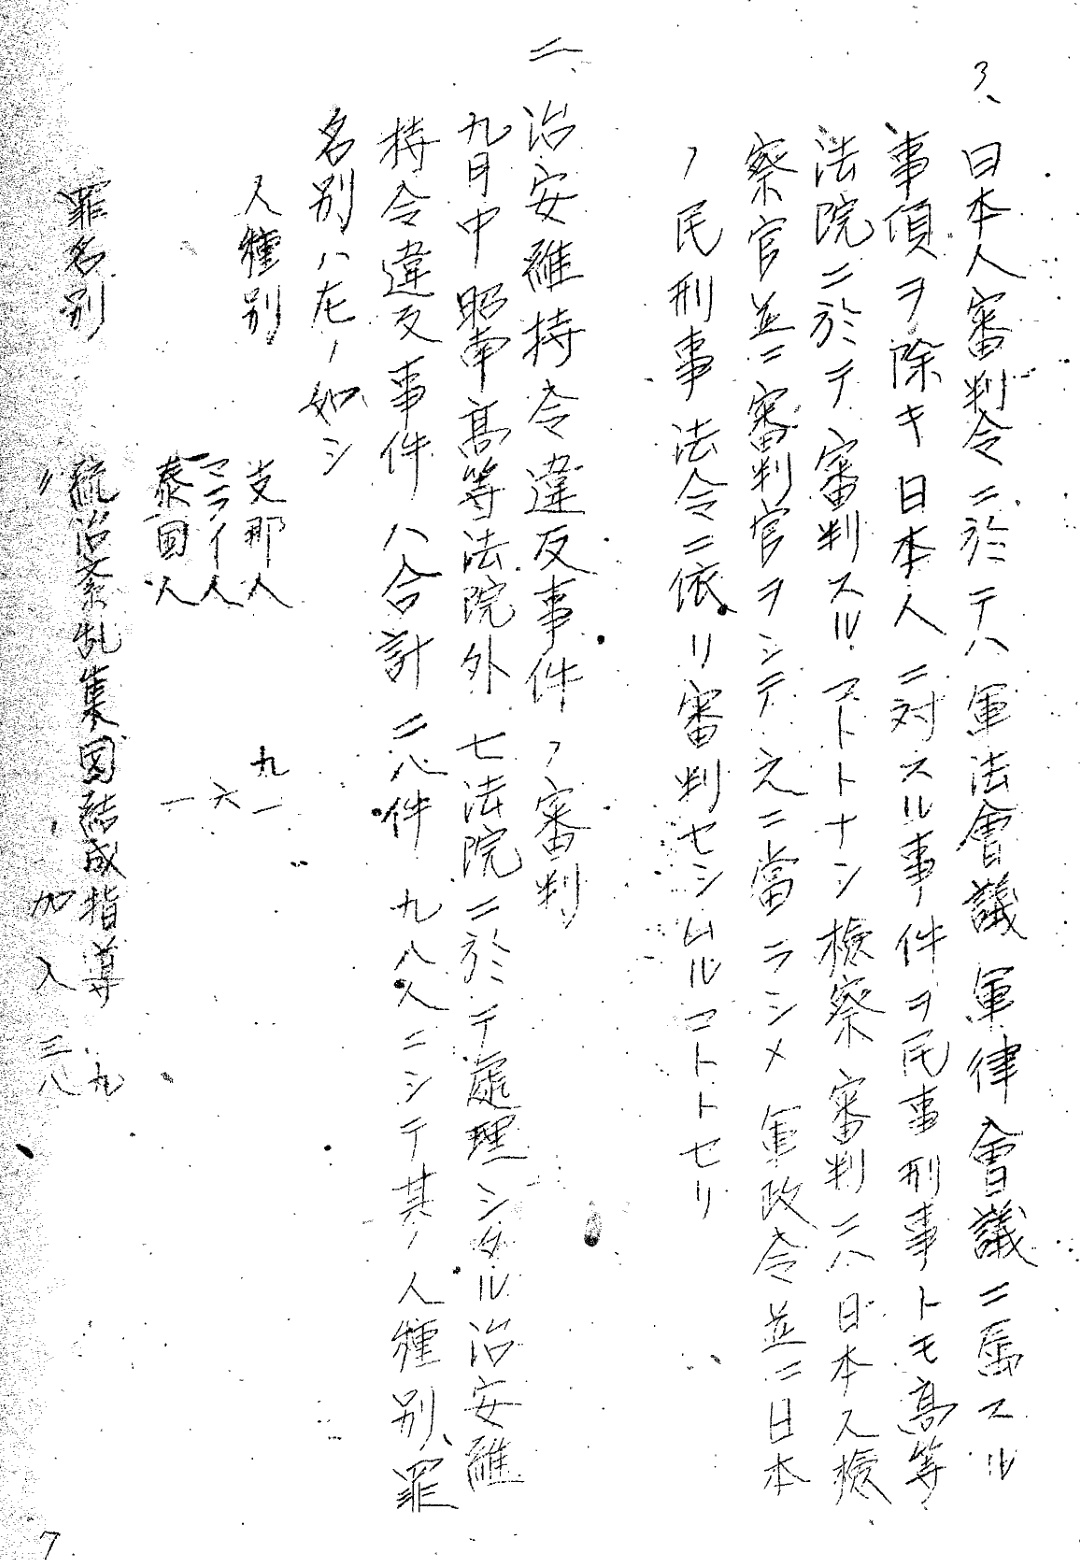 3、日本人審判令ニ於テハ軍法會議軍律會議ニ属スル
事項ヲ除キ日本人ニ対スル事件ヲ民事刑事トモ高等
法院ニ於テ審判スルコトトナシ檢察審判ニハ日本人檢
察官並ニ審判官ヲシテ之ニ當ラシメ軍政令並ニ日本
ノ民刑事法令ニ依リ審判セシムルコトトセリ
二、治安維持令違反事件ノ審判
九月中昭南高等法院外七法院ニ於テ處理シタル治安維
持令違反事件ハ合計二八件九八人ニシテ其ノ人種別、罪
名別ハ左ノ如シ
人種別 支那人 九一
マライ人 六
泰国人 一
罪名別 統治紊乱集団結成指導 九
〃 、加入 三八
7